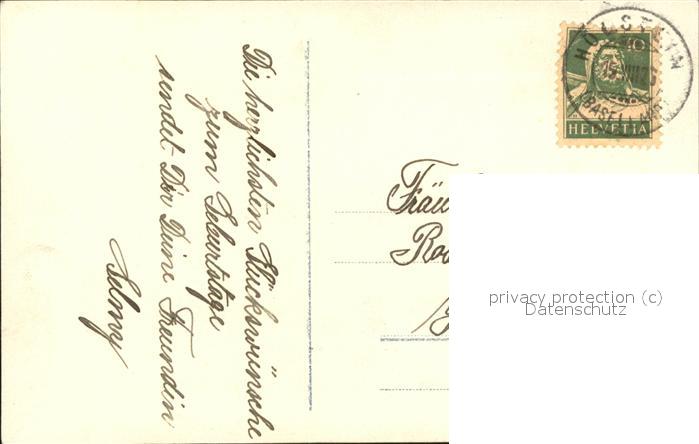 Die herzlichsten Glückswünsche
zum Geburtstage
sendet Dir Deine Freundin
Selmy
10
HELVETIA
HÖLSTEIN
(BASELLAND)
privacy protection (c)
Datenschutz